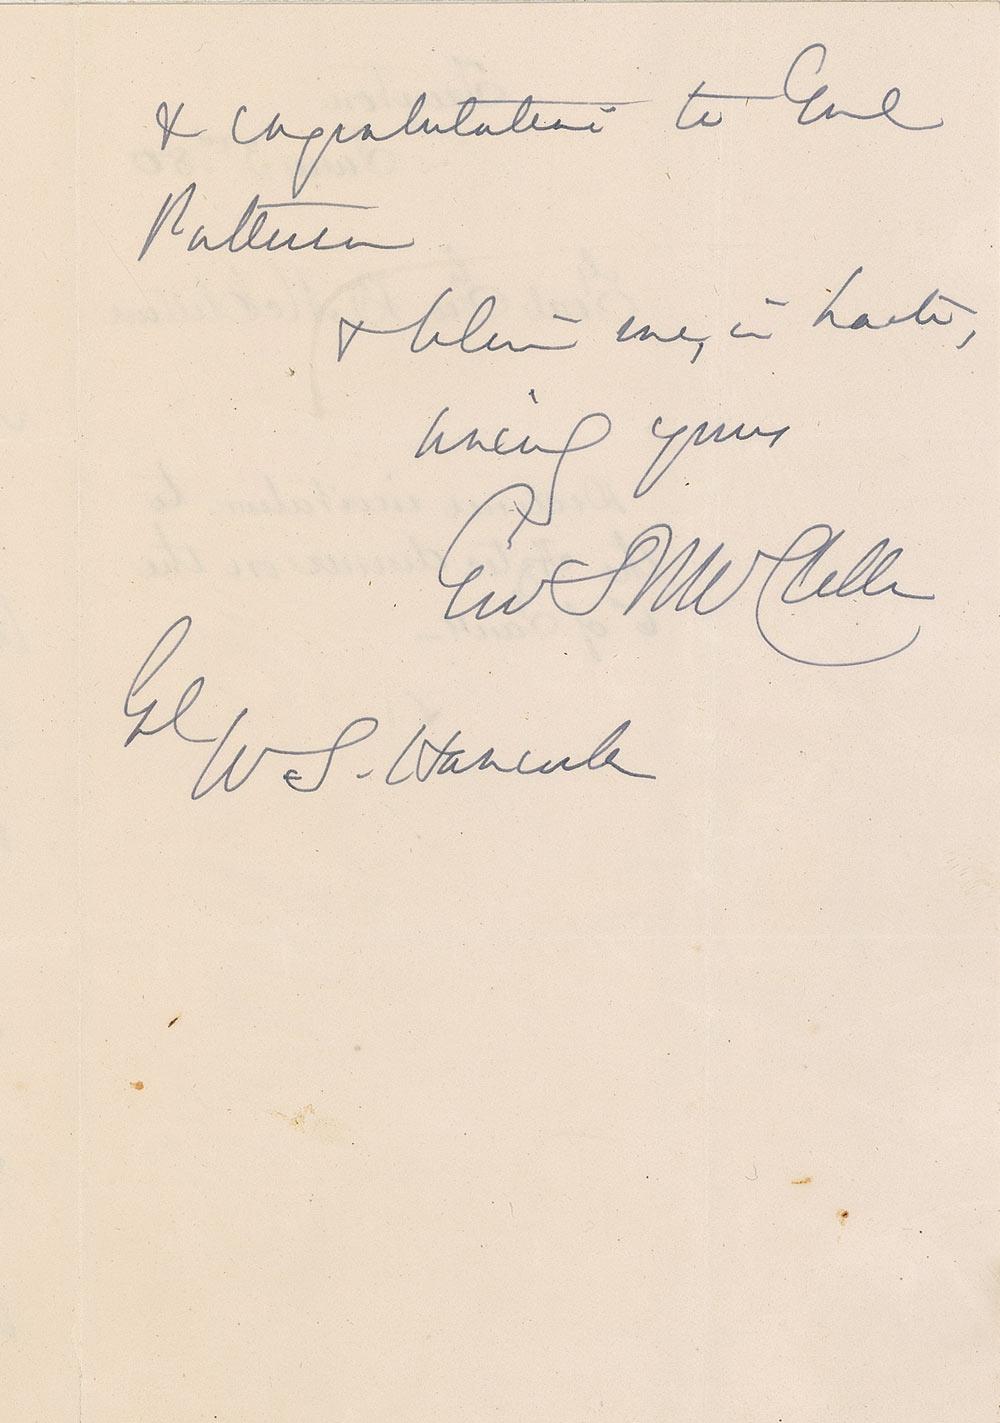 & congratulations to Genl
Patterson
& believe me, in haste,
sincerely yours
Geo B McClellan
Genl
W. S. Hancock